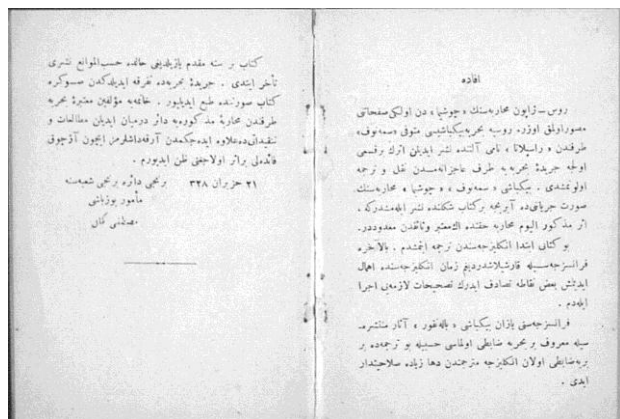 افاده
روس ــ ژاپون محاربه‌سنك «چوشیما» دن اولكی صفحاتی
مصور اولمق اوزره روسیه بحریه بیكباشیسی متوفی «سمه‌نوف»
طرفندن «راسپلاتا» نامی آلتنده نشر ایدیلن اثرك بر قسمی
اولجه جریدهٔ بحریه‌یه طرف عاجزانه‌مدن نقل و ترجمه
اولونمشدی . بیكباشی «سمه‌نوف» «چوشیما» محاربه‌سنك
صورت جریانی‌ده آیریجه بر كتاب شكلنده نشر ایله‌مشدركه .
اثر مذكور الیوم محاربه حقنده اك معتبر وثائقدن معدوددر.
بو كتابی ابتدا انكلیزجه‌سندن ترجمه ایتمشدم . بالآخره
فرانسزجه‌سیله قارشیلاشدیردیغم زمان انكلیزجه‌سنده اهمال
ایدیلمش بعض نقاطه تصادف ایدرك تصحیحات لازمه‌یی اجرا
ایله‌دم .
فرانسزجه‌سنی یازان بیكباشی « باله‌نقور » آثار منتشره‌ـ
سیله معروف بر بحریه ضابطی اولماسی حسبیله بو ترجمه‌ده بر
بریه ضابطی اولان انكلیزجه مترجمندن دها زیاده صلاحیتدار
ایدی .
كتاب بر سنه مقدم یازیلدیغی حالده حسب الموانع نشری
تأخر ایتدی . جریدهٔ بحریه‌ده تفرقه ایدیلدكدن صوكره
كتاب صورتنده طبع ایدیلیور . خاتمه‌یه مؤلفین معتبرهٔ بحریه
طرفندن محاربهٔ مذكوره‌یه دائر درمیان ایدیلن مطالعات و
تنقیداتی‌ده علاوه ایده‌جكمدن آرقه‌داشلرمز ایچون آز چوق
فائده‌لی بر اثر اولاجغنی ظن ایدیورم .
٢١ حزیران ٣٢٨ برنجی دائره برنجی شعبه‌سنه
مأمور یوزباشی
مصطفی كمال